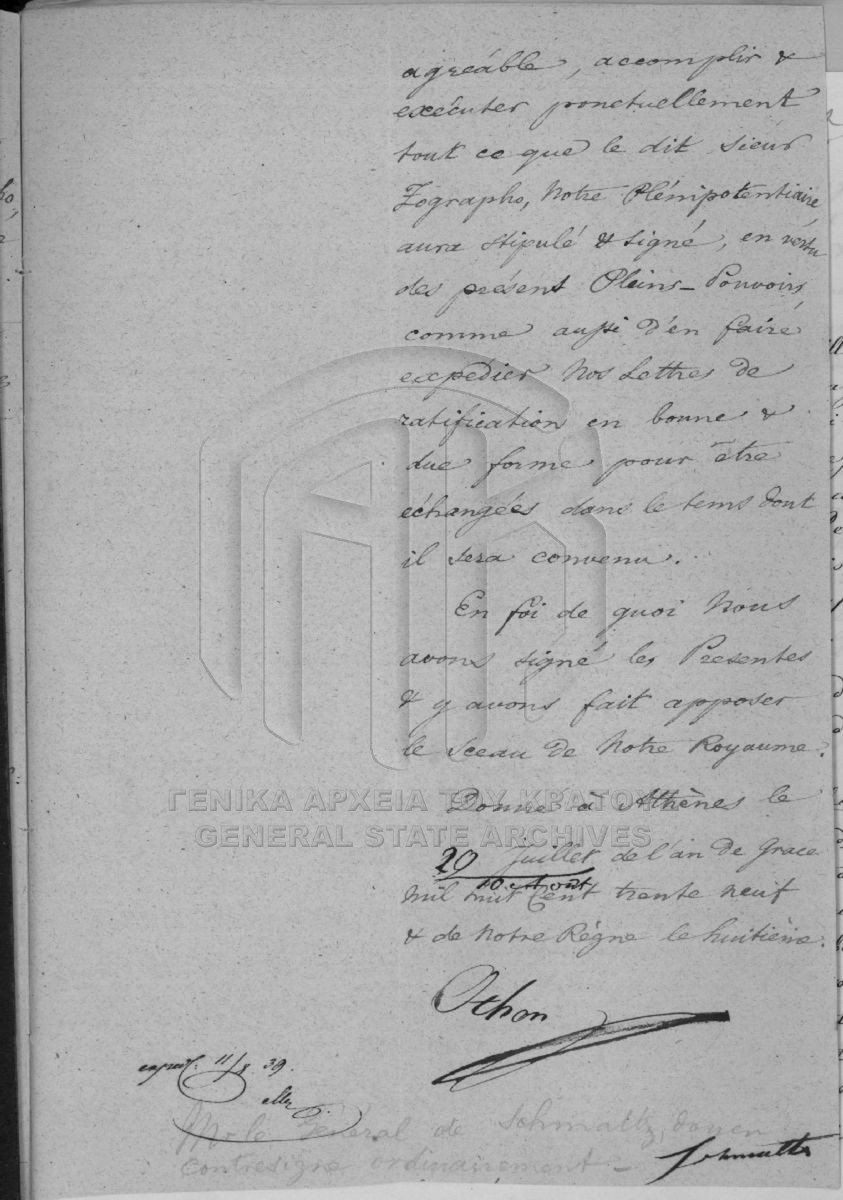 agreáble, accomplir &
exécuter ponctuellement
tout ce que le dit Sieur
Zographo, Notre Plénipotentiaire,
aura stipulé & signé, en vertu
des présent Pleins-Pouvoirs,
comme aussi d'en faire
expédier Nos Lettres de
ratification en bonne &
due forme pour être
échangées dans le tems dont
il sera convenu.
En foi de quoi Nous
avons signé les Presentes
& y avons fait apposer
le Sceau de Notre Royaume.
ΓΕΝΙΚΑ ΑΡΧΕΙΑ ΤΟΥ ΚΡΑΤΟΥΣ
GENERAL STATE ARCHIVES
Donné à Athènes le
29 juillet de l'an de Grace
10 Août
Mil huit Cent trente neuf
& de Notre Règne le huitième.
Othon
11/8 39.
Mr le Général de Schmaltz, doyen
contresigne ordinairement_
Schmaltz